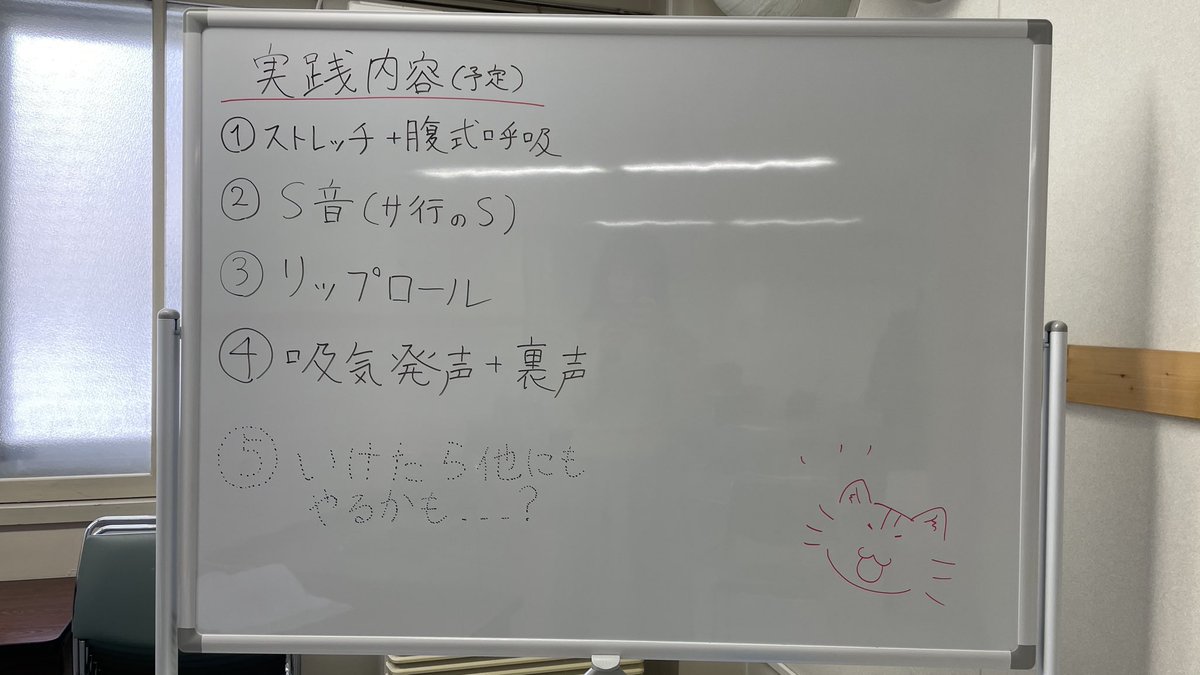 実践内容(予定)
①ストレッチ+腹式呼吸
②S音(サ行のS)
③リップロール
④吸気発声+裏声
⑤いけたら他にも
やるかも...?